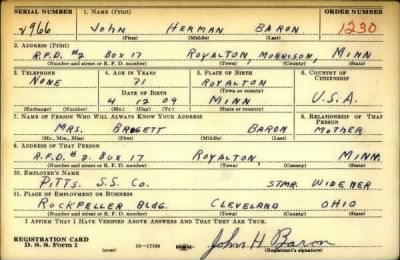 SERIAL NUMBER 1. NAME (Print) ORDER NUMBER
2966 JOHN HERMAN BARON 1230
(First) (Middle) (Last)
2. ADDRESS (Print)
R.F.D. #2 BOX 17 ROYALTON, MORRISON, MINN
(Number and street or R. F. D. number) (Town) (County) (State)
3. TELEPHONE 4. AGE IN YEARS 5. PLACE OF BIRTH 6. COUNTRY OF CITIZENSHIP
NONE 31 ROYALTON
(Town or county)
DATE OF BIRTH
4 12 09 MINN U.S.A.
(Exchange) (Number) (Mo.) (Day) (Yr.) (State or country)
7. NAME OF PERSON WHO WILL ALWAYS KNOW YOUR ADDRESS 8. RELATIONSHIP OF THAT PERSON
MRS. BRDGETT BARON MOTHER
(Mr., Mrs., Miss) (First) (Middle) (Last)
9. ADDRESS OF THAT PERSON
R.F.D. # 2. BOX 17 ROYALTON, MINN.
(Number and street or R. F. D. number) (Town) (County) (State)
10. EMPLOYER'S NAME
PITTS. S.S. CO. STMR. WIDENER
11. PLACE OF EMPLOYMENT OR BUSINESS
ROCKFELLER BLDG. CLEVELAND OHIO
(Number and street or R. F. D. number) (Town) (County) (State)
I AFFIRM THAT I HAVE VERIFIED ABOVE ANSWERS AND THAT THEY ARE TRUE.
REGISTRATION CARD
D. S. S. Form 1 (over) 16—17105 John H Baron
(Registrant's signature)